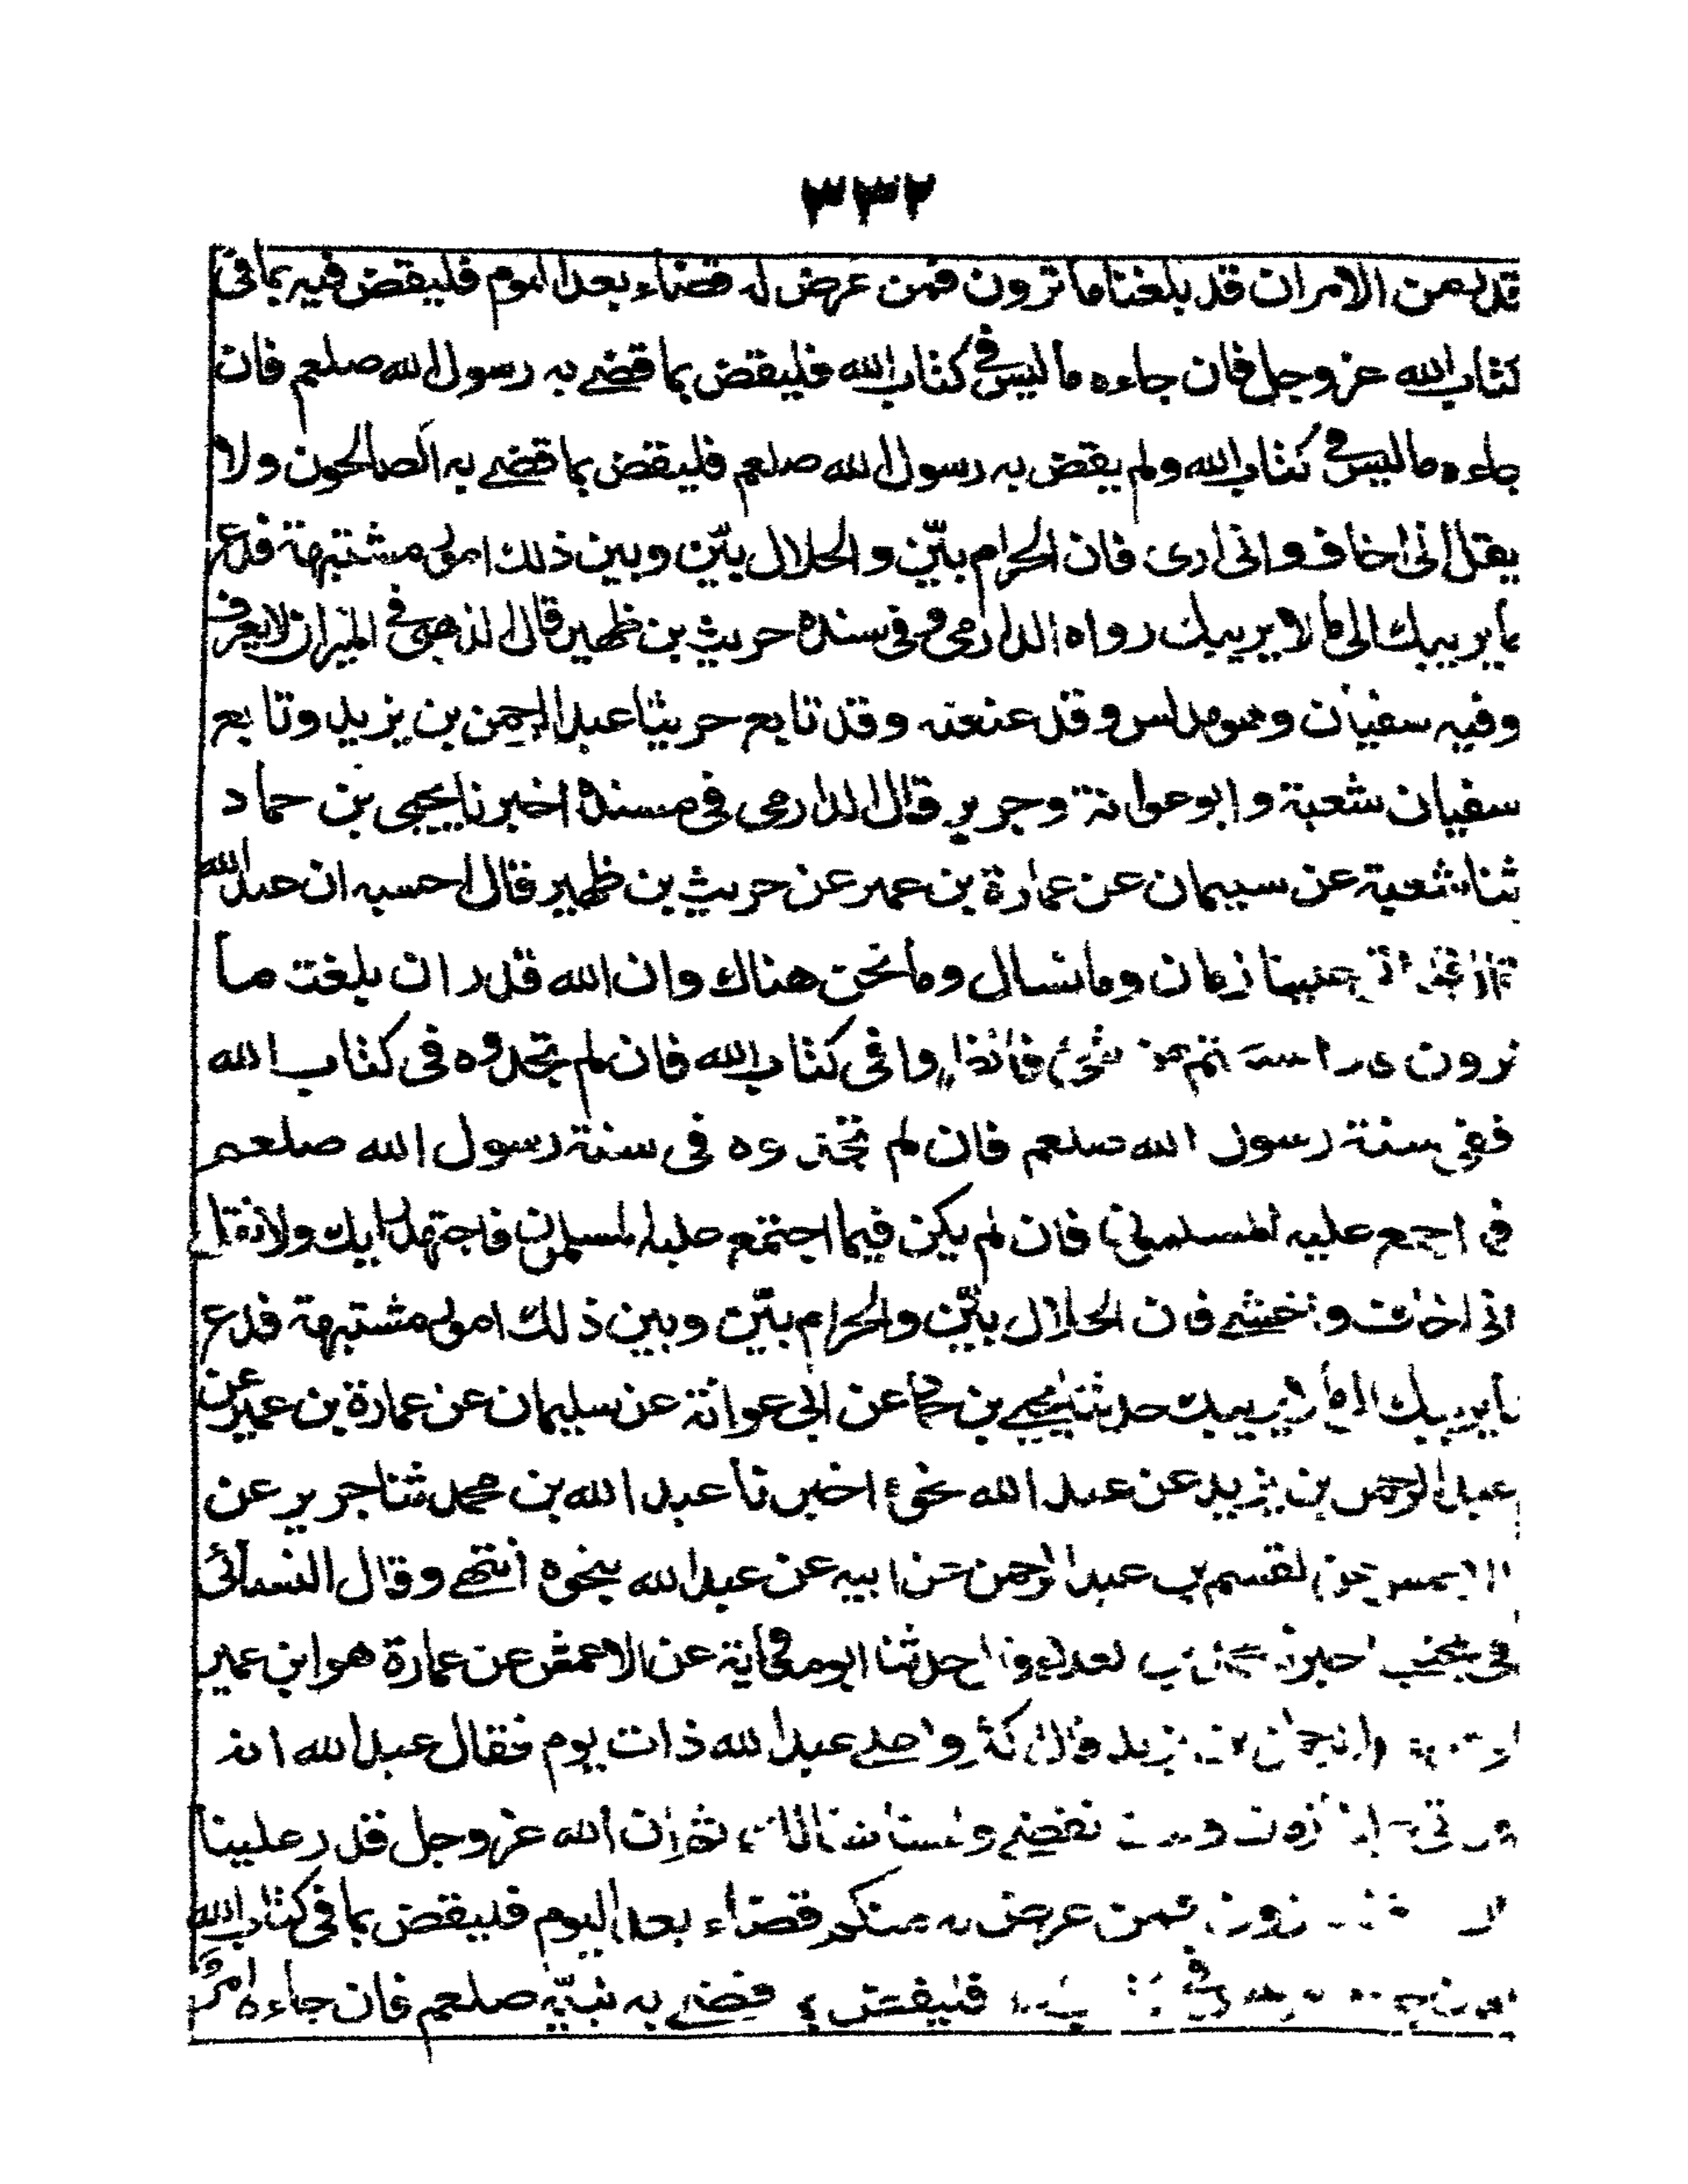 ٣٣٢
قدر من الامران قد بلغنا ما ترون فمن عرض له قضاء بعد اليوم فليقض فيه بما فى
كتاب الله عز وجل فان جاءه ما ليس فى كتاب الله فليقض بما قضے به رسول الله صلعم فان
جاءه ما ليس فى كتاب الله ولم يقض به رسول الله صلعم فليقض بما قضے به الصالحون ولا
يقل انى اخاف وانى ارى فان الحرام بيّن والحلال بيّن وبين ذلك امور مشتبهة فدع
ما يريبك الى ما لا يريبك رواه الدارمى وفى سنده حريث بن ظهير قال الذهبى فى الميزان لا يعرف
وفيه سفيان وهو مدلس وقد عنعنه وقد تابع حريثا عبد الرحمن بن يزيد وتابع
سفيان شعبة وابو عوانة وجرير قال الدارمى فى مسنده اخبرنا يحيى بن حماد
ثنا شعبة عن سليمان عن عمارة بن عمير عن حريث بن ظهير قال احسبه ان عبد الله
قال قد علينا زمان وما نسال وما نحن هناك وان الله قدر ان بلغت ما
ترون شئ فانظروا فى كتاب الله فان لم تجدوه فى كتاب الله
ففى سنة رسول الله صلعم فان لم تجدوه فى سنة رسول الله صلعم
فما اجمع عليه المسلمون فان لم يكن فيما اجتمع عليه المسلمون فاجتهد رايك ولا تقل
انى اخاف واخشے فان الحلال بيّن والحرام بيّن وبين ذلك امور مشتبهة فدع
ما يريبك الى ما لا يريبك حدثنا يحيے بن حماد عن ابى عوانة عن سليمان عن عمارة بن عمير عن
عبد الرحمن بن يزيد عن عبد الله نحوه اخبرنا عبد الله بن محمد ثنا جرير عن
الاعمش عن القسم بن عبد الرحمن عن ابيه عن عبد الله بنحوه انتهے وقال النسائى
فى المجتبى اخبرنا محمد بن العلاء حدثنا ابو معاوية عن الاعمش عن عمارة هو ابن عمير
عن عبد الرحمن بن يزيد قال اكثروا علے عبد الله ذات يوم فقال عبد الله انه
زمان ولسنا نقضے ولسنا هنالك ثم ان الله عز وجل قدر علينا
ترون فمن عرض له منكم قضاء بعد اليوم فليقض بما فى كتاب الله
فى فليقض بما قضے به نبيّه صلعم فان جاءه امر